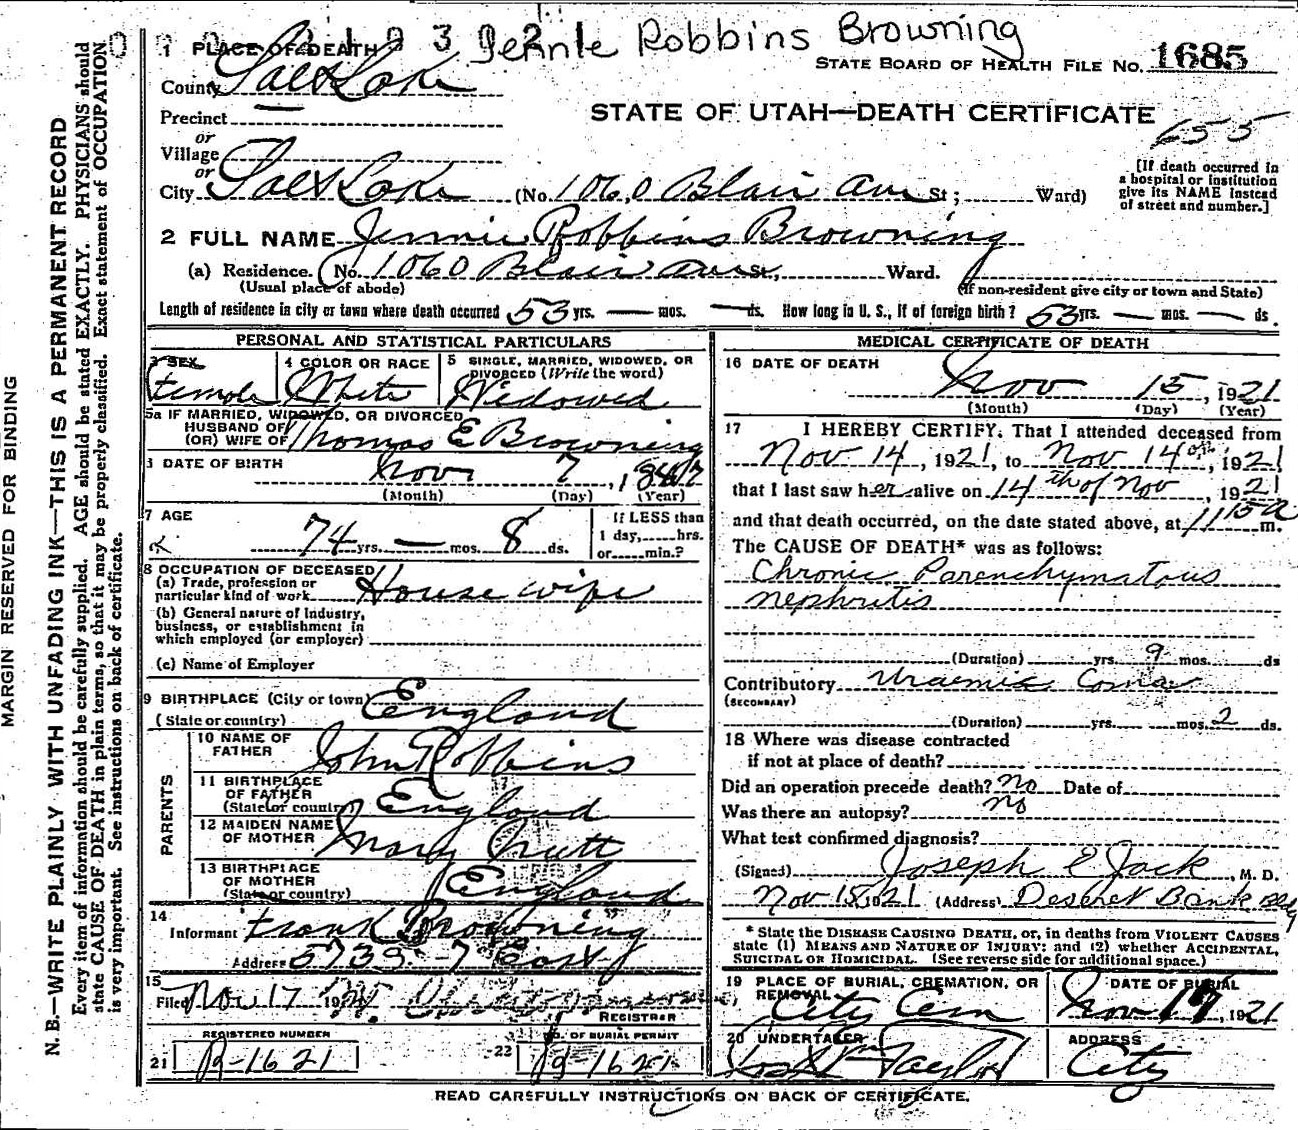 Jennie Robbins Browning
1 PLACE OF DEATH
STATE BOARD OF HEALTH FILE NO. 1685
County Salt Lake
STATE OF UTAH—DEATH CERTIFICATE
Precinct
655
or
Village
or
City Salt Lake (No. 1060 Blair Ave St; Ward)
[If death occurred in
a hospital or institution
give its NAME instead
of street and number.]
2 FULL NAME Jennie Robbins Browning
(a) Residence. (No. 1060 Blair Ave St; Ward.
(Usual place of abode) (If non-resident give city or town and State)
Length of residence in city or town where death occurred 53 yrs. — mos. — ds. How long in U. S., if of foreign birth? 53 yrs. — mos. — ds.
PERSONAL AND STATISTICAL PARTICULARS
3 SEX Female
4 COLOR OR RACE White
5 SINGLE, MARRIED, WIDOWED, OR
DIVORCED (Write the word)
Widowed
5a IF MARRIED, WIDOWED, OR DIVORCED
HUSBAND OF
(OR) WIFE OF Thomas E Browning
DATE OF BIRTH Nov 7, 1847
(Month) (Day) (Year)
7 AGE 74 yrs. — mos. 8 ds.
If LESS than
1 day, hrs.
or min.?
8 OCCUPATION OF DECEASED
(a) Trade, profession or
particular kind of work House wife
(b) General nature of Industry,
business, or establishment in
which employed (or employer)
(c) Name of Employer
9 BIRTHPLACE (City or town) England
(State or country)
PARENTS
10 NAME OF
FATHER John Robbins
11 BIRTHPLACE
OF FATHER
(State or country) England
12 MAIDEN NAME
OF MOTHER Mary Nutt
13 BIRTHPLACE
OF MOTHER
(State or country) England
14
Informant Frank Browning
Address 5735 - 7 East
15
Filed Nov 17 19
REGISTRAR
REGISTERED NUMBER
21 B-1621
NO. OF BURIAL PERMIT
22 B-1621
MEDICAL CERTIFICATE OF DEATH
16 DATE OF DEATH
Nov 15, 1921
(Month) (Day) (Year)
17 I HEREBY CERTIFY, That I attended deceased from
Nov 14, 1921, to Nov 14th, 1921
that I last saw her alive on 14th of Nov, 1921
and that death occurred, on the date stated above, at 1115 a m.
The CAUSE OF DEATH* was as follows:
Chronic Parenchymatous
nephritis
(Duration) yrs. 9 mos. ds
Contributory Uraemic Coma
(SECONDARY)
(Duration) yrs. mos. 2 ds.
18 Where was disease contracted
if not at place of death?
Did an operation precede death? no Date of
Was there an autopsy? no
What test confirmed diagnosis?
(Signed) Joseph E Jack, M. D.
Nov 15, 1921 (Address) Deseret Bank Bldg
* State the DISEASE CAUSING DEATH, or, in deaths from VIOLENT CAUSES
state (1) MEANS AND NATURE OF INJURY: and (2) whether ACCIDENTAL,
SUICIDAL OR HOMICIDAL. (See reverse side for additional space.)
19 PLACE OF BURIAL, CREMATION, OR
REMOVAL
City Cem
DATE OF BURIAL
Nov 17, 1921
20 UNDERTAKER
Jos Wm Taylor
ADDRESS
City
READ CAREFULLY INSTRUCTIONS ON BACK OF CERTIFICATE.
MARGIN RESERVED FOR BINDING
N. B.—WRITE PLAINLY WITH UNFADING INK—THIS IS A PERMANENT RECORD
Every item of information should be carefully supplied. AGE should be stated EXACTLY. PHYSICIANS should
state CAUSE OF DEATH in plain terms, so that it may be properly classified. Exact statement of OCCUPATION
is very important. See instructions on back of certificate.